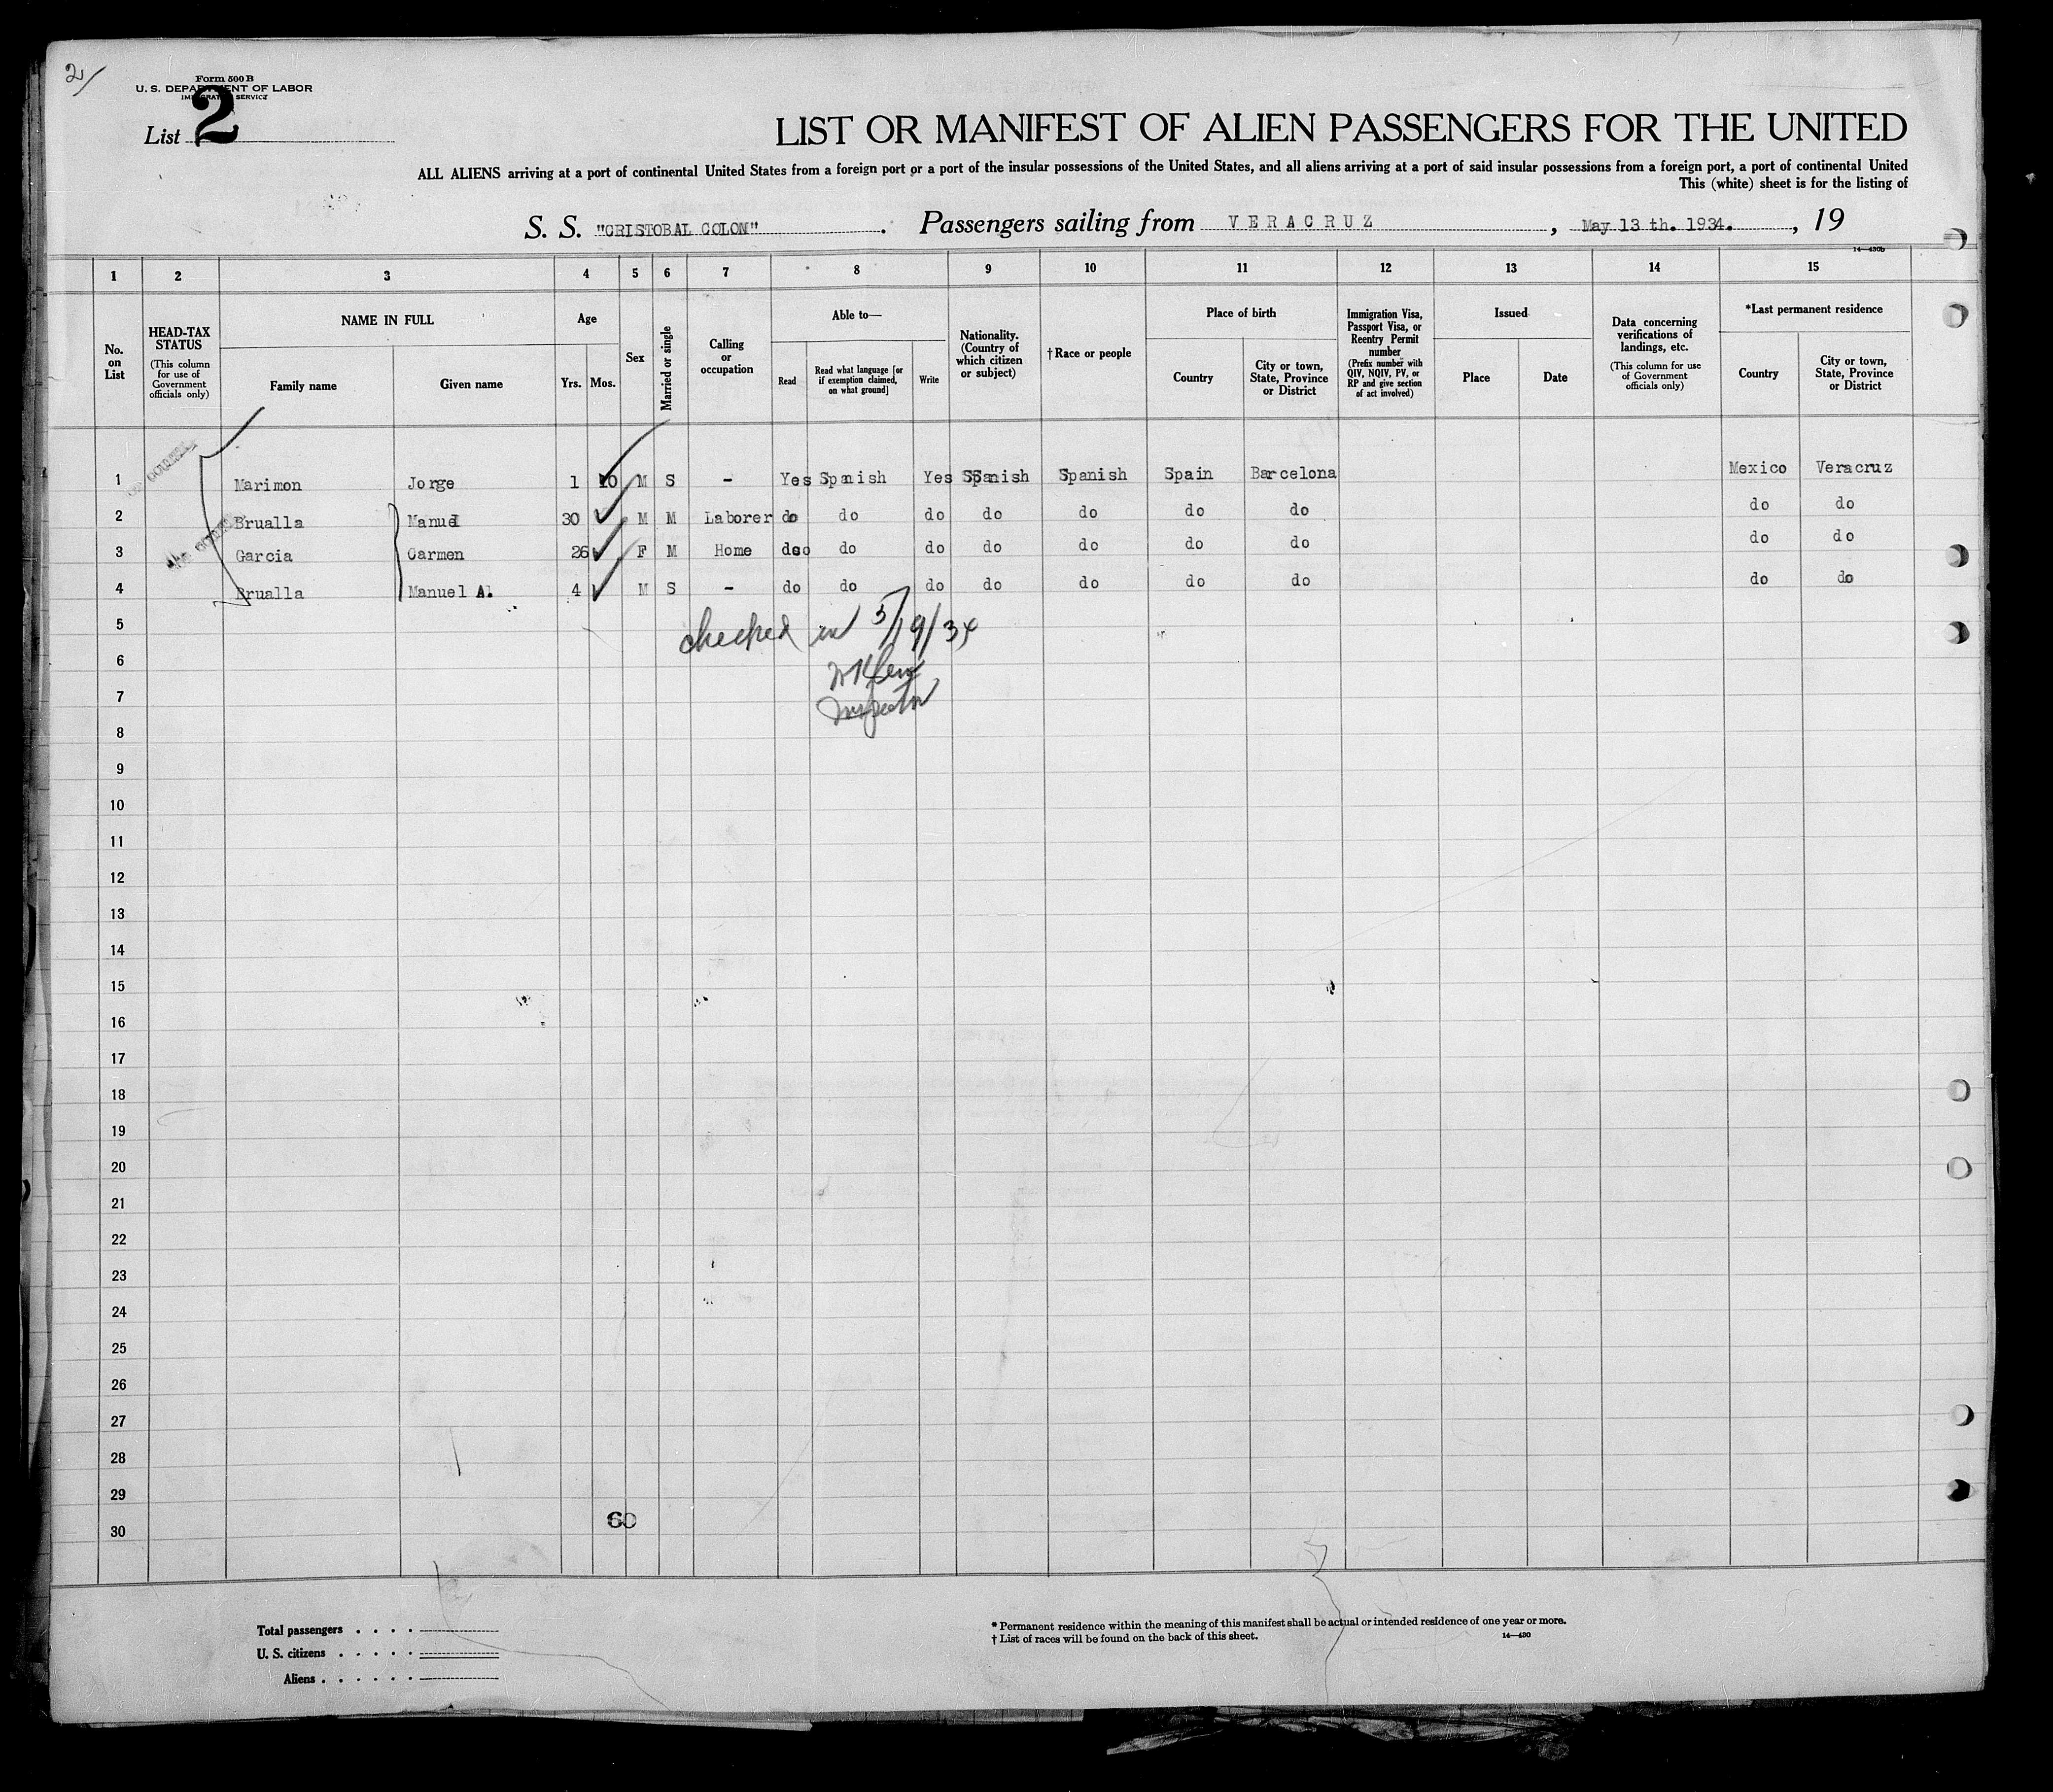 2/
Form 500 B
U. S. DEPARTMENT OF LABOR
IMMIGRATION SERVICE
List 2
LIST OR MANIFEST OF ALIEN PASSENGERS FOR THE UNITED
ALL ALIENS arriving at a port of continental United States from a foreign port or a port of the insular possessions of the United States, and all aliens arriving at a port of said insular possessions from a foreign port, a port of continental United
This (white) sheet is for the listing of
S. S. "CRISTOBAL COLON". Passengers sailing from VERACRUZ, May 13 th. 1934., 19
14—430b
1 2 3 4 5 6 7 8 9 10 11 12 13 14 15
No. on List
HEAD-TAX STATUS
(This column for use of Government officials only)
NAME IN FULL
Family name
Given name
Age
Yrs.
Mos.
Sex
Married or single
Calling or occupation
Able to—
Read
Read what language [or if exemption claimed, on what ground]
Write
Nationality. (Country of which citizen or subject)
†Race or people
Place of birth
Country
City or town, State, Province or District
Immigration Visa, Passport Visa, or Reentry Permit number
(Prefix number with QIV, NQIV, PV, or RP and give section of act involved)
Issued
Place
Date
Data concerning verifications of landings, etc.
(This column for use of Government officials only)
*Last permanent residence
Country
City or town, State, Province or District
1 Marimon Jorge 1 10 M S - Yes Spanish Yes Spanish Spanish Spain Barcelona Mexico Veracruz
2 Brualla Manuel 30 M M Laborer do do do do do do do do do
3 Garcia Carmen 26 F M Home do do do do do do do do do
4 Brualla Manuel A. 4 M S - do do do do do do do do do
5
checked in 5/19/34
6
7
Inspector
8
9
10
11
12
13
14
15
16
17
18
19
20
21
22
23
24
25
26
27
28
29
30
60
Total passengers . . . .
U. S. citizens . . . . .
Aliens . . . . . .
* Permanent residence within the meaning of this manifest shall be actual or intended residence of one year or more.
† List of races will be found on the back of this sheet.
14—430